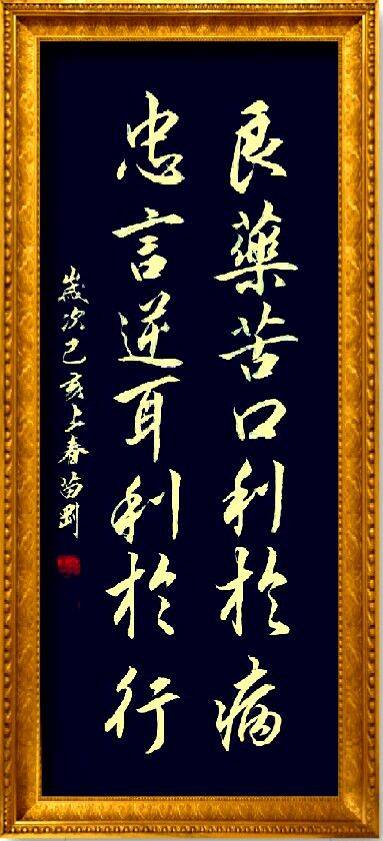 良藥苦口利於病
忠言逆耳利於行
歲次己亥上春苗剛